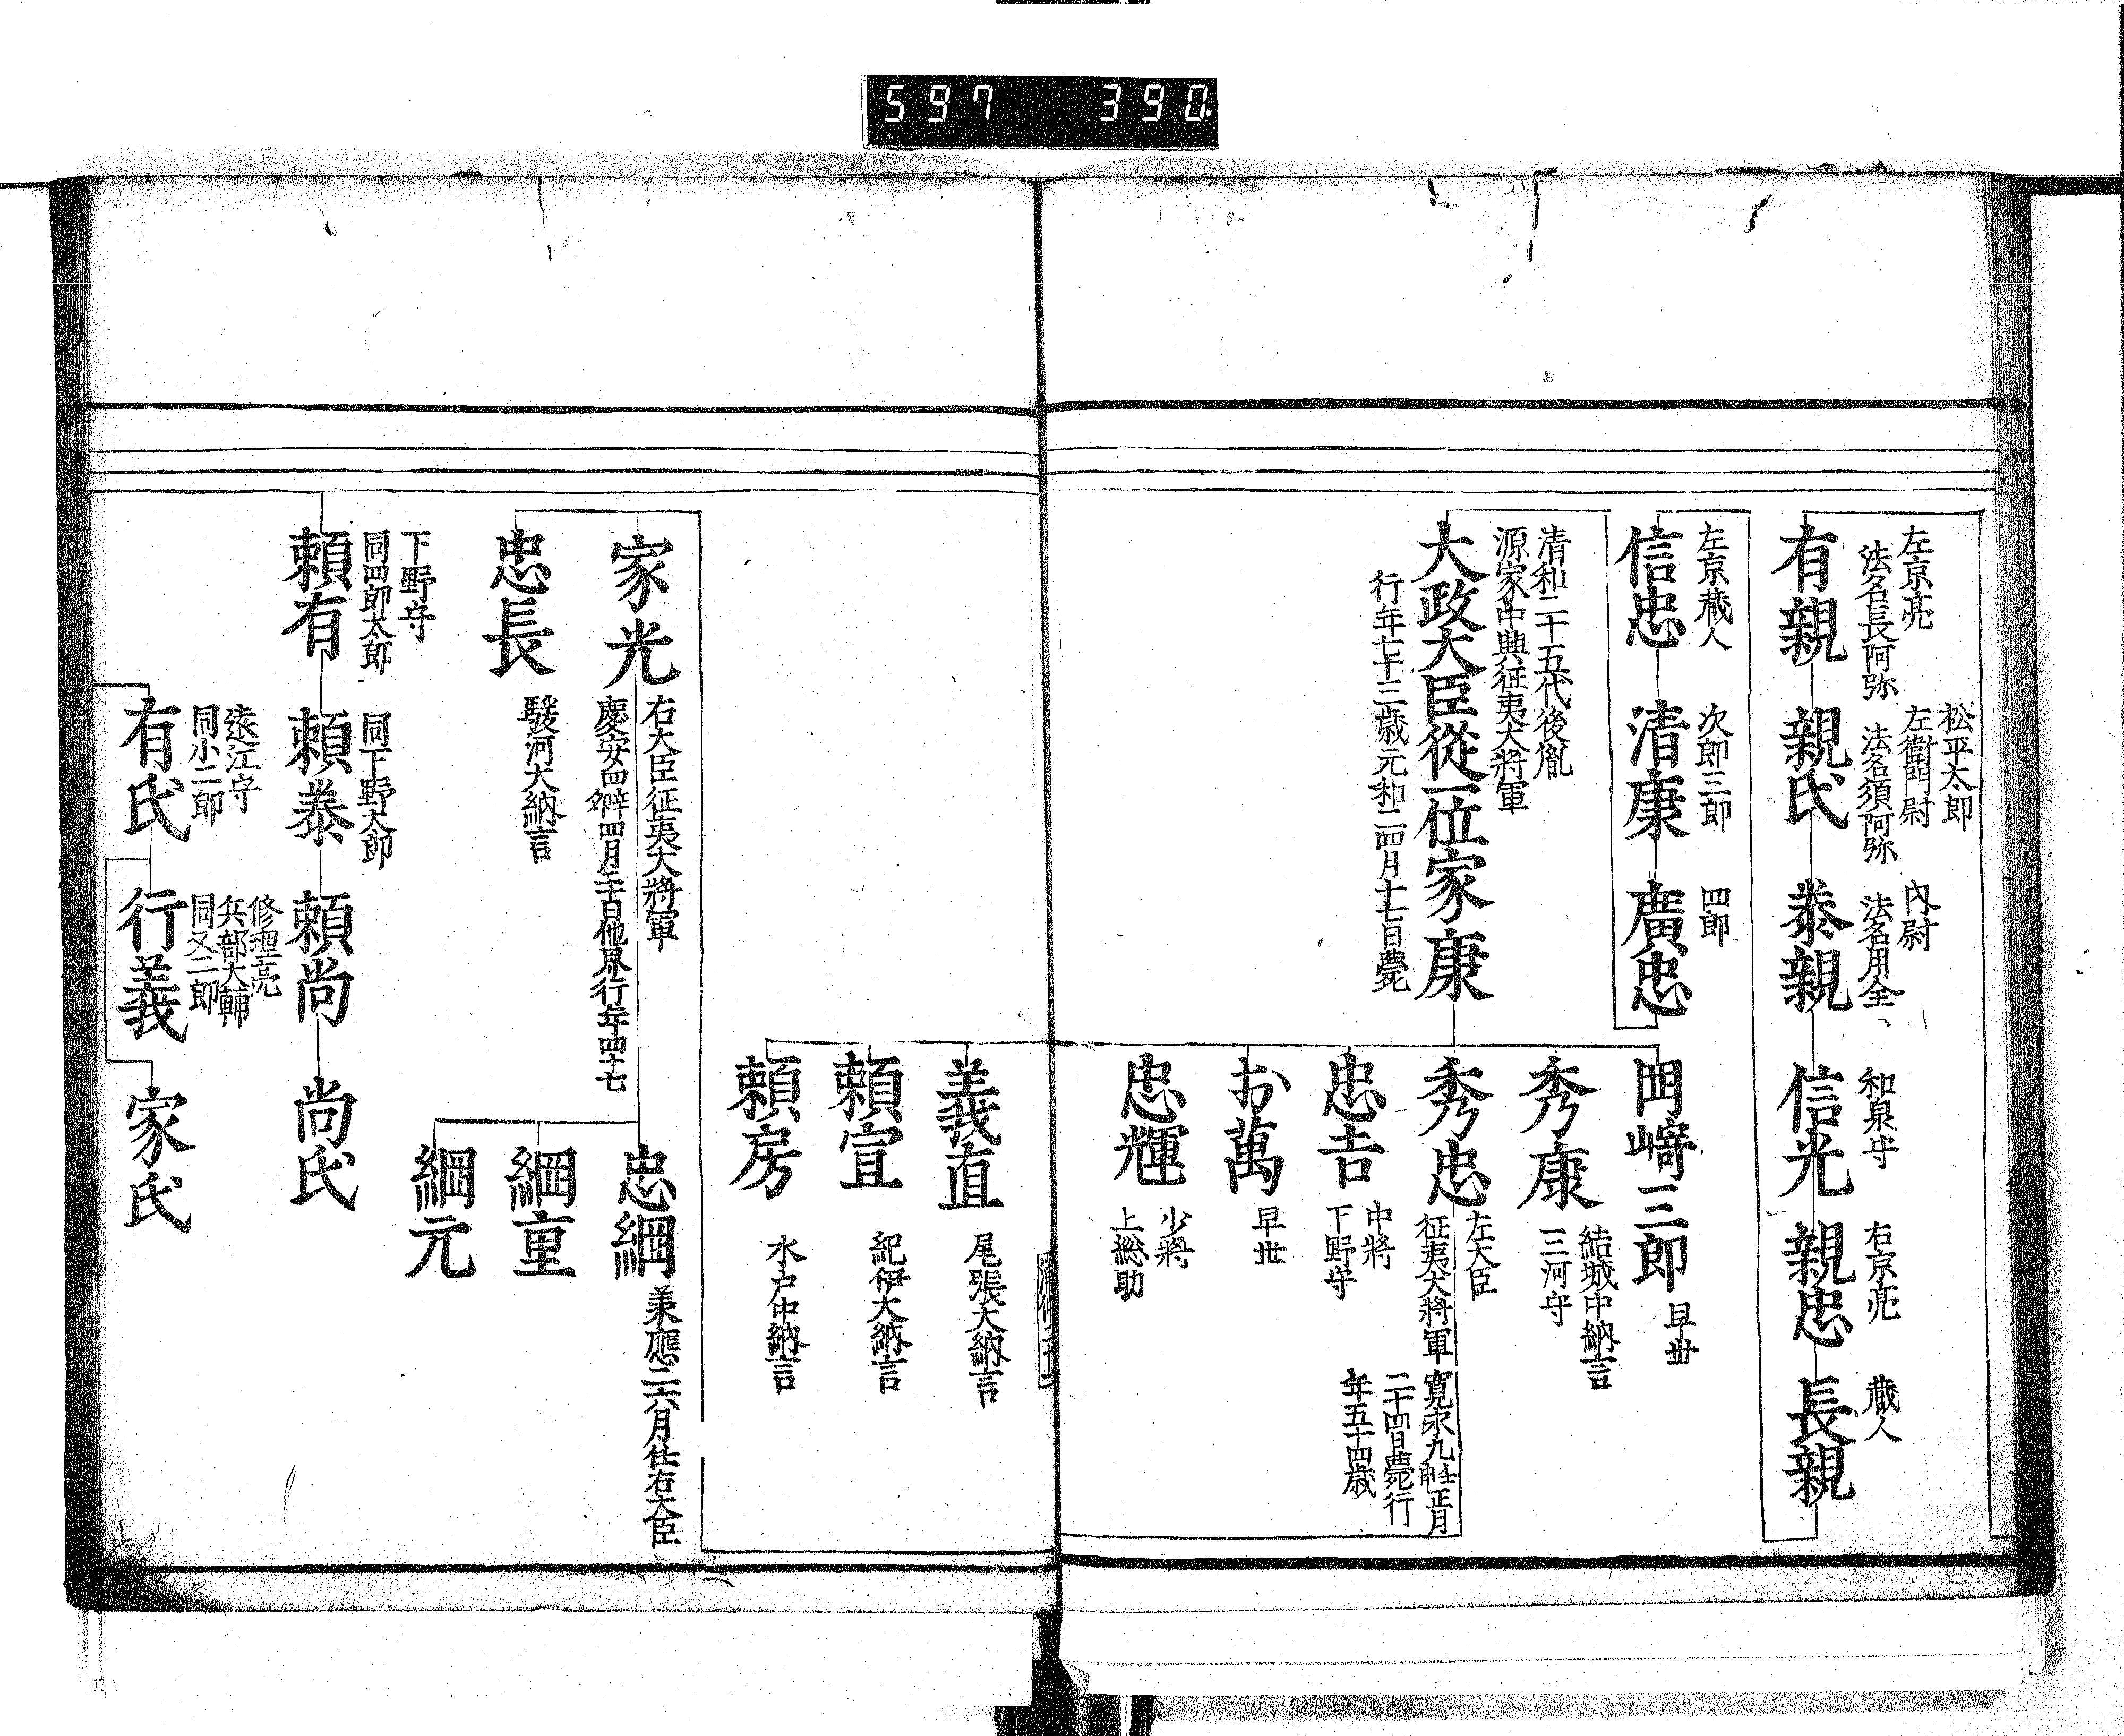 597 390
左京亮
法名長阿弥
有親
松平太郎
左衛門尉
法名須阿弥
親氏
内尉
法名用全
泰親
和泉守
信光
右京亮
親忠
蔵人
長親
左京蔵人
信忠
次郎三郎
清康
四郎
廣忠
清和二十五代後胤
源家中興征夷大將軍
大政大臣從一位家康
行年七十三歳元和二四月十七日薨
岡﨑三郎
早世
秀康
結城中納言
三河守
秀忠
左大臣
征夷大將軍
寛永九壬申正月
二十四日薨行
年五十四歳
忠吉
中將
下野守
お萬
早世
忠輝
少將
上総助
義直
尾張大納言
頼宣
紀伊大納言
頼房
水戸中納言
家光
右大臣征夷大將軍
慶安四辛卯四月二十日他界行年四十七
忠綱
羕應二六月仕右大臣
綱重
綱元
忠長
駿河大納言
下野守
同四郎太郎
頼有
同下野太郎
頼泰
頼尚
尚氏
遠江守
同小二郎
有氏
修理亮
兵部大輔
同又二郎
行義
家氏